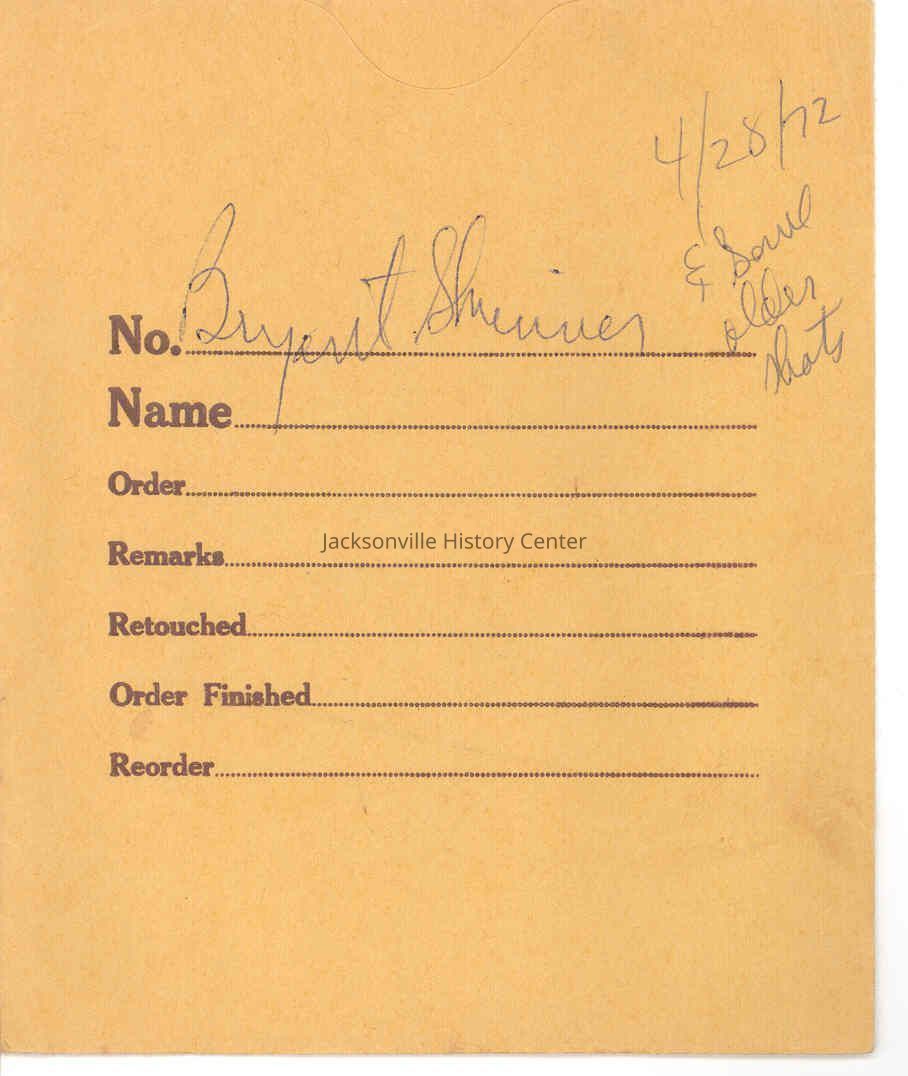 4/28/72
& Some
older
shots
No. Bryant Skinner
Name
Order
Remarks
Jacksonville History Center
Retouched
Order Finished
Reorder